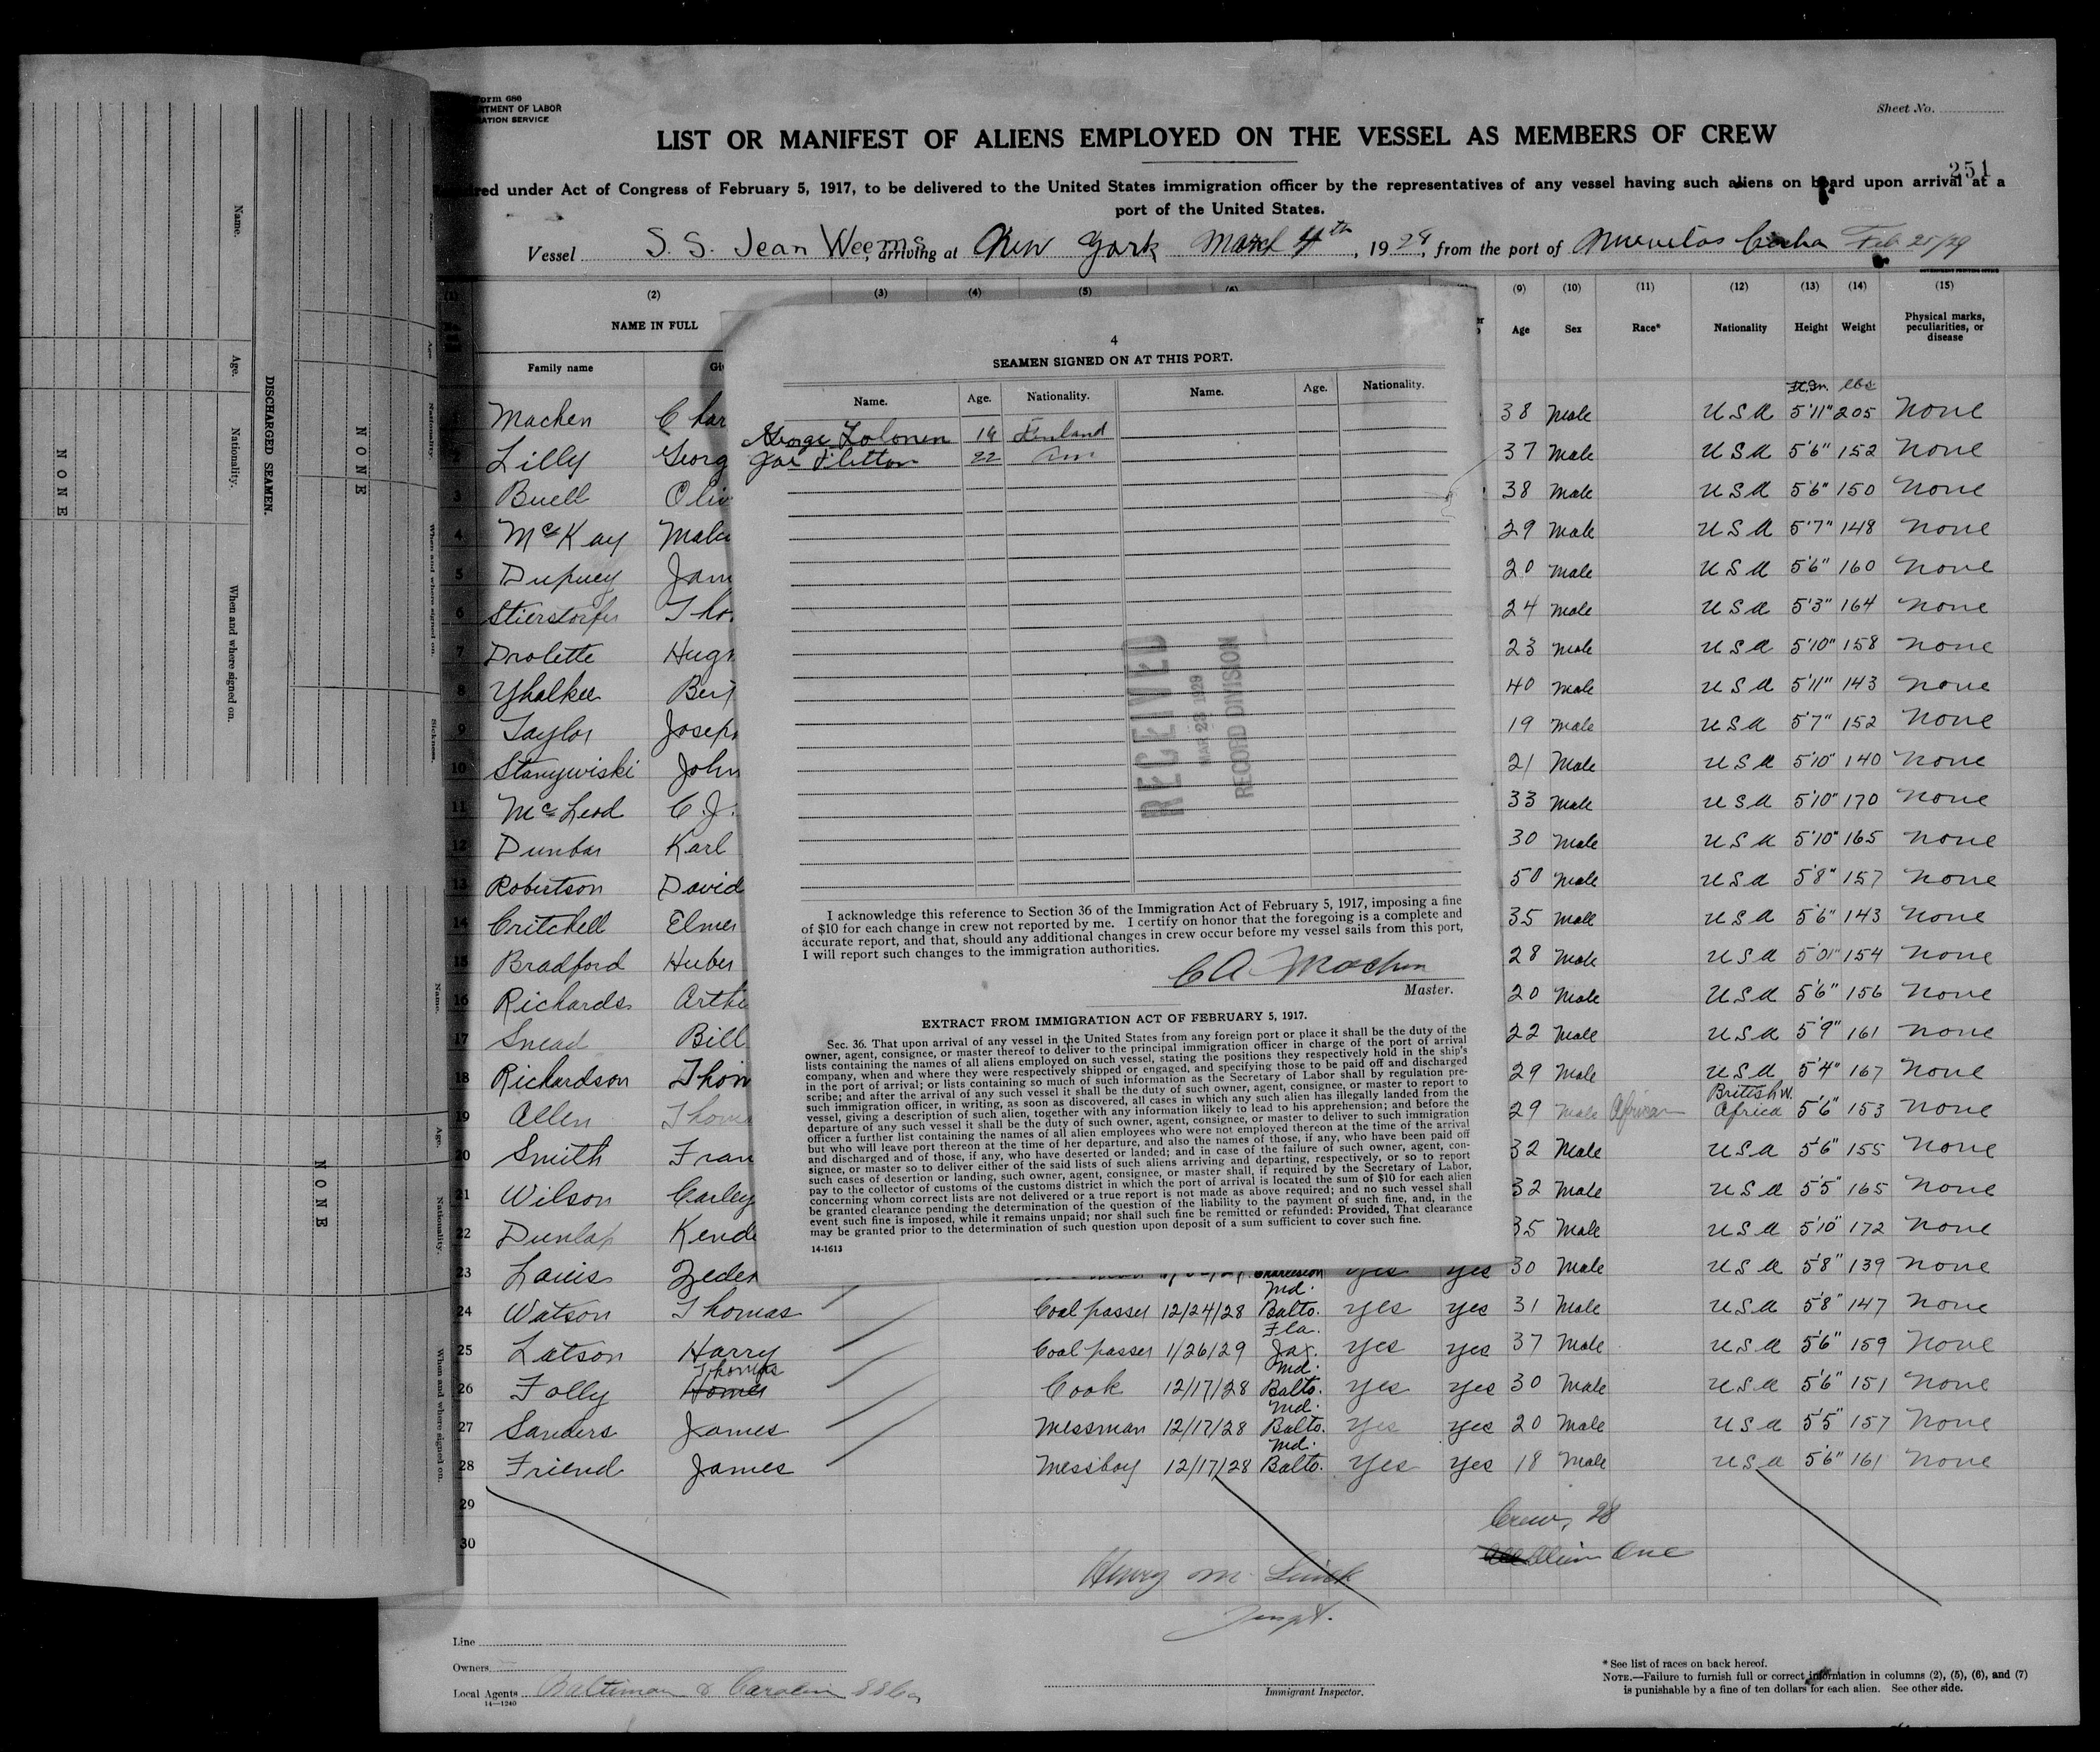 Form 680
RTMENT OF LABOR
ATION SERVICE
Sheet No.
LIST OR MANIFEST OF ALIENS EMPLOYED ON THE VESSEL AS MEMBERS OF CREW
251
red under Act of Congress of February 5, 1917, to be delivered to the United States immigration officer by the representatives of any vessel having such aliens on board upon arrival at a
port of the United States.
Vessel S.S. Jean Weems, arriving at New York March 4th, 1929, from the port of Cuba Feb 25/29
(1) (2) (3) (4) (5) (6) (9) (10) (11) (12) (13) (14) (15)
NAME IN FULL Age Sex Race* Nationality Height Weight Physical marks, peculiarities, or disease
Family name
Ft. In. lbs
1 Machen Char 38 Male USA 5'11" 205 None
2 Lilly Georg 37 Male USA 5'6" 152 None
3 Buell Oliv 38 Male USA 5'6" 150 None
4 McKay 29 Male USA 5'7" 148 None
5 Dupuey Jam 20 Male USA 5'6" 160 None
6 Stierstorfer Tho 24 Male USA 5'3" 164 None
7 Drolette Hug 23 Male USA 5'10" 158 None
8 Yhalkee Ber 40 Male USA 5'11" 143 None
9 Taylor Josep 19 Male USA 5'7" 152 None
10 Stanywiski John 21 Male USA 5'10" 140 None
11 McLeod C.J. 33 Male USA 5'10" 170 None
12 Dunbar Karl 30 Male USA 5'10" 165 None
13 Robertson David 50 Male USA 5'8" 157 None
14 Critchell Elmer 35 Male USA 5'6" 143 None
15 Bradford Huber 28 Male USA 5'01" 154 None
16 Richards Arth 20 Male USA 5'6" 156 None
17 Snead Bill 22 Male USA 5'9" 161 None
18 Richardson Thom 29 Male USA 5'4" 167 None
19 Allen Thoma 29 Male African British W. Africa 5'6" 153 None
20 Smith Fran 32 Male USA 5'6" 155 None
21 Wilson Carley 32 Male USA 5'5" 165 None
22 Dunlap Kend 35 Male USA 5'10" 172 None
23 Louis Zeden Charleston yes yes 30 Male USA 5'8" 139 None
24 Watson Thomas Coal passer 12/24/28 Md. Balto. yes yes 31 Male USA 5'8" 147 None
25 Latson Harry Coal passer 1/26/29 Fla. Jax. yes yes 37 Male USA 5'6" 159 None
26 Folly Homer Thomas Cook 12/17/28 Md. Balto. yes yes 30 Male USA 5'6" 151 None
27 Sanders James Messman 12/17/28 Md. Balto. yes yes 20 Male USA 5'5" 157 None
28 Friend James Messboy 12/17/28 Md. Balto. yes yes 18 Male USA 5'6" 161 None
29
30
Crew, 28
Alien One
Henry M.
Inspt.
Line
Owners
Local Agents Baltimore & Carolina SS Co
14—1240
Immigrant Inspector.
* See list of races on back hereof.
NOTE.—Failure to furnish full or correct information in columns (2), (5), (6), and (7)
is punishable by a fine of ten dollars for each alien. See other side.
4
SEAMEN SIGNED ON AT THIS PORT.
Name. Age. Nationality. Name. Age. Nationality.
George Finland
Joe Fletton 22 Am
RECEIVED
MAR 23 1929
RECORD DIVISION
I acknowledge this reference to Section 36 of the Immigration Act of February 5, 1917, imposing a fine
of $10 for each change in crew not reported by me. I certify on honor that the foregoing is a complete and
accurate report, and that, should any additional changes in crew occur before my vessel sails from this port,
I will report such changes to the immigration authorities.
CA Machen
Master.
EXTRACT FROM IMMIGRATION ACT OF FEBRUARY 5, 1917.
Sec. 36. That upon arrival of any vessel in the United States from any foreign port or place it shall be the duty of the
owner, agent, consignee, or master thereof to deliver to the principal immigration officer in charge of the port of arrival
lists containing the names of all aliens employed on such vessel, stating the positions they respectively hold in the ship's
company, when and where they were respectively shipped or engaged, and specifying those to be paid off and discharged
in the port of arrival; or lists containing so much of such information as the Secretary of Labor shall by regulation pre-
scribe; and after the arrival of any such vessel it shall be the duty of such owner, agent, consignee, or master to report to
such immigration officer, in writing, as soon as discovered, all cases in which any such alien has illegally landed from the
vessel, giving a description of such alien, together with any information likely to lead to his apprehension; and before the
departure of any such vessel it shall be the duty of such owner, agent, consignee, or master to deliver to such immigration
officer a further list containing the names of all alien employees who were not employed thereon at the time of the arrival
but who will leave port thereon at the time of her departure, and also the names of those, if any, who have been paid off
and discharged and of those, if any, who have deserted or landed; and in case of the failure of such owner, agent, con-
signee, or master so to deliver either of the said lists of such aliens arriving and departing, respectively, or so to report
such cases of desertion or landing, such owner, agent, consignee, or master shall, if required by the Secretary of Labor,
pay to the collector of customs of the customs district in which the port of arrival is located the sum of $10 for each alien
concerning whom correct lists are not delivered or a true report is not made as above required; and no such vessel shall
be granted clearance pending the determination of the question of the liability to the payment of such fine, and, in the
event such fine is imposed, while it remains unpaid; nor shall such fine be remitted or refunded: Provided, That clearance
may be granted prior to the determination of such question upon deposit of a sum sufficient to cover such fine.
14-1613
DISCHARGED SEAMEN.
Name. Age. Nationality. When and where signed on.
NONE
NONE
Age. Nationality. When and where signed on. Sickness.
Name. Age. Nationality. When and where signed on.
NONE